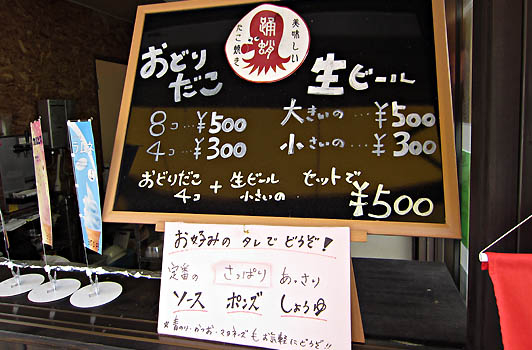 美味しい
踊蛸
たこ焼き
おどりだこ
8コ…¥500
4コ…¥300
生ビール
大きいの…¥500
小さいの…¥300
おどりだこ 4コ + 生ビール 小さいの セットで ¥500
お好みの タレで どうぞ!
定番の ソース
さっぱり ポンズ
あっさり しょうゆ
※青のり・かつお・マヨネーズも お気軽にどうぞ!!